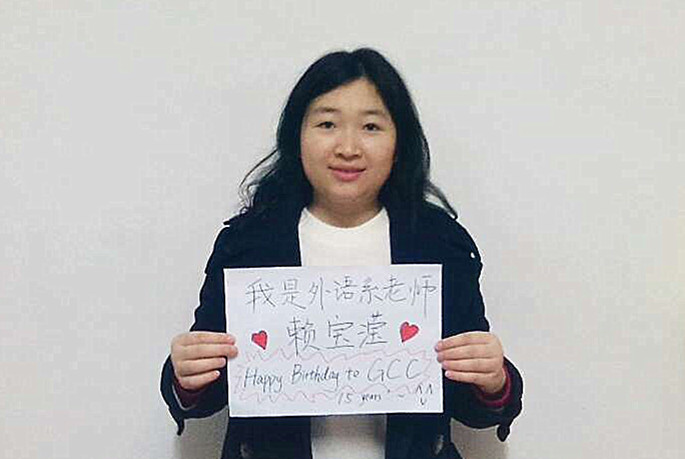 我是外语系老师
赖宝滢
Happy Birthday to GCC
15 years ~ ^^